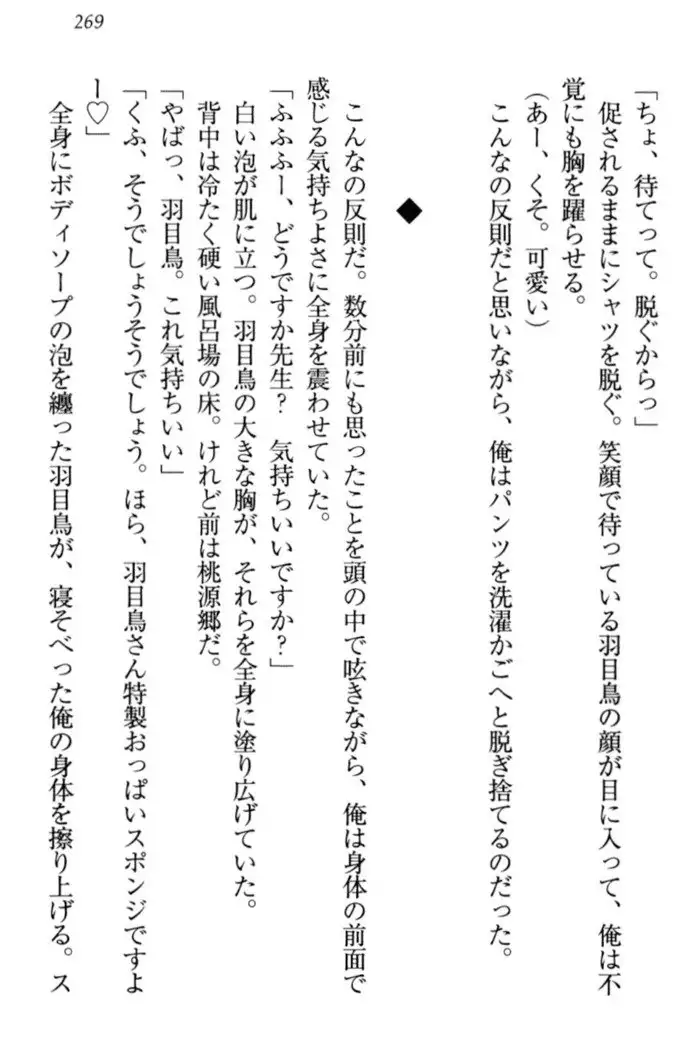 269
「ちょ、待てって。脱ぐからっ」
促されるままにシャツを脱ぐ。笑顔で待っている羽目鳥の顔が目に入って、俺は不
覚にも胸を躍らせる。
(あー、くそ。可愛い)
こんなの反則だと思いながら、俺はパンツを洗濯かごへと脱ぎ捨てるのだった。
◆
こんなの反則だ。数分前にも思ったことを頭の中で呟きながら、俺は身体の前面で
感じる気持ちよさに全身を震わせていた。
「ふふふー、どうですか先生？　気持ちいいですか？」
白い泡が肌に立つ。羽目鳥の大きな胸が、それらを全身に塗り広げていた。
背中は冷たく硬い風呂場の床。けれど前は桃源郷だ。
「やばっ、羽目鳥。これ気持ちいい」
「くふ、そうでしょうそうでしょう。ほら、羽目鳥さん特製おっぱいスポンジですよ
ー♡」
全身にボディソープの泡を纏った羽目鳥が、寝そべった俺の身体を擦り上げる。ス